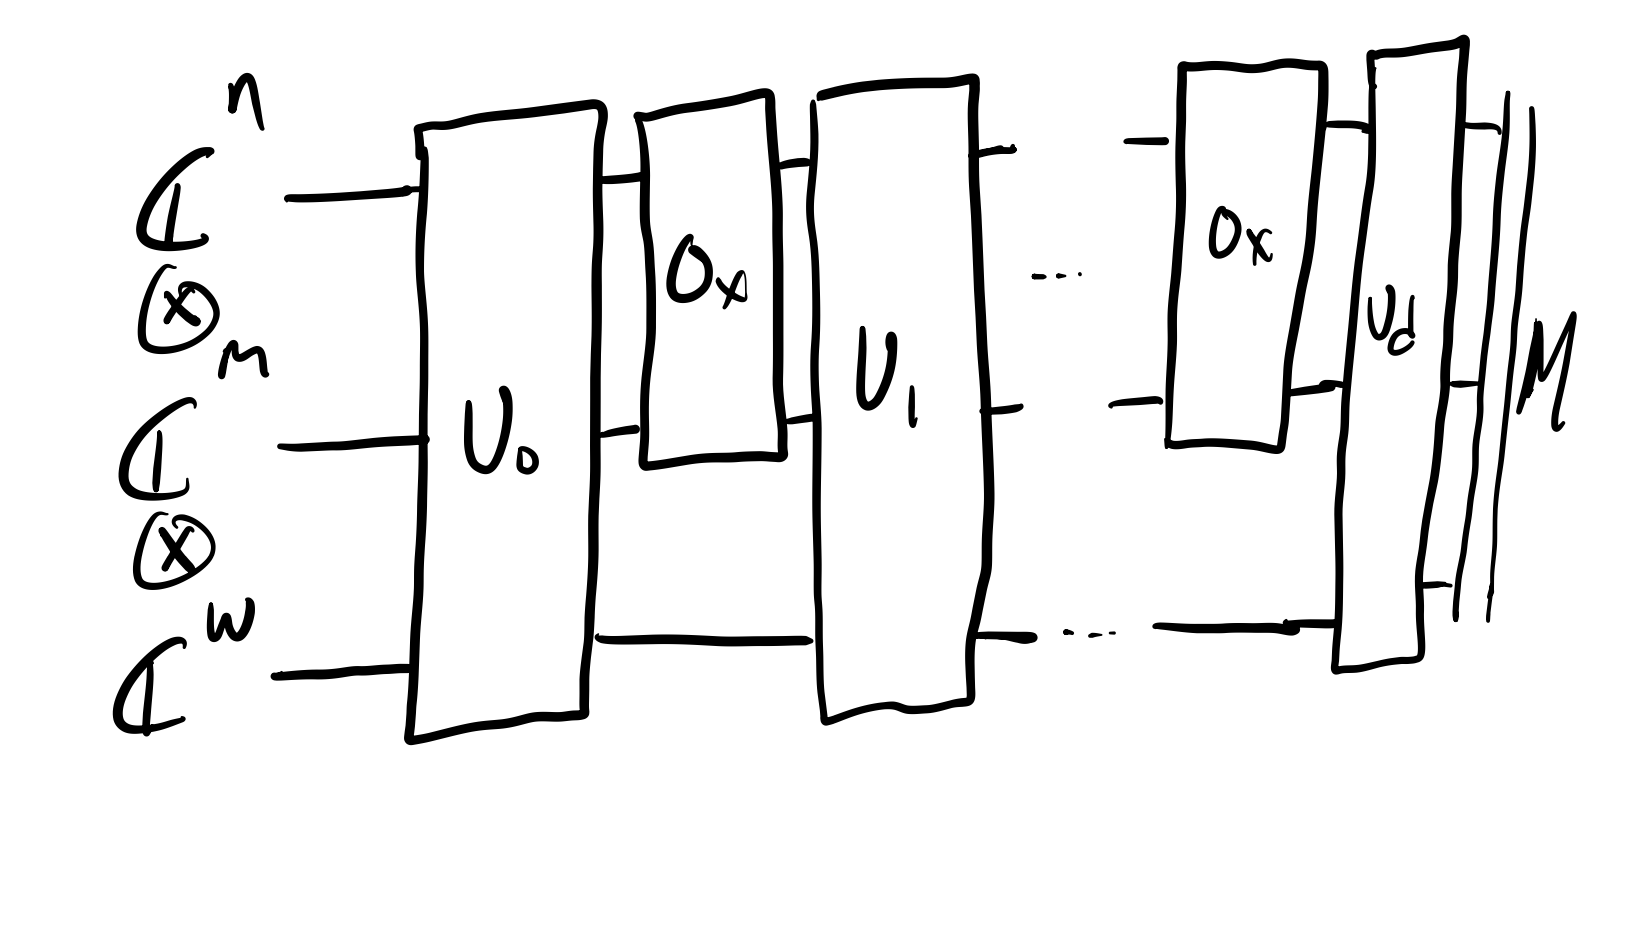 ℂⁿ
⊗
ℂᵐ
⊗
ℂʷ
U₀
Oₓ
U₁
....
....
Oₓ
U_d
M